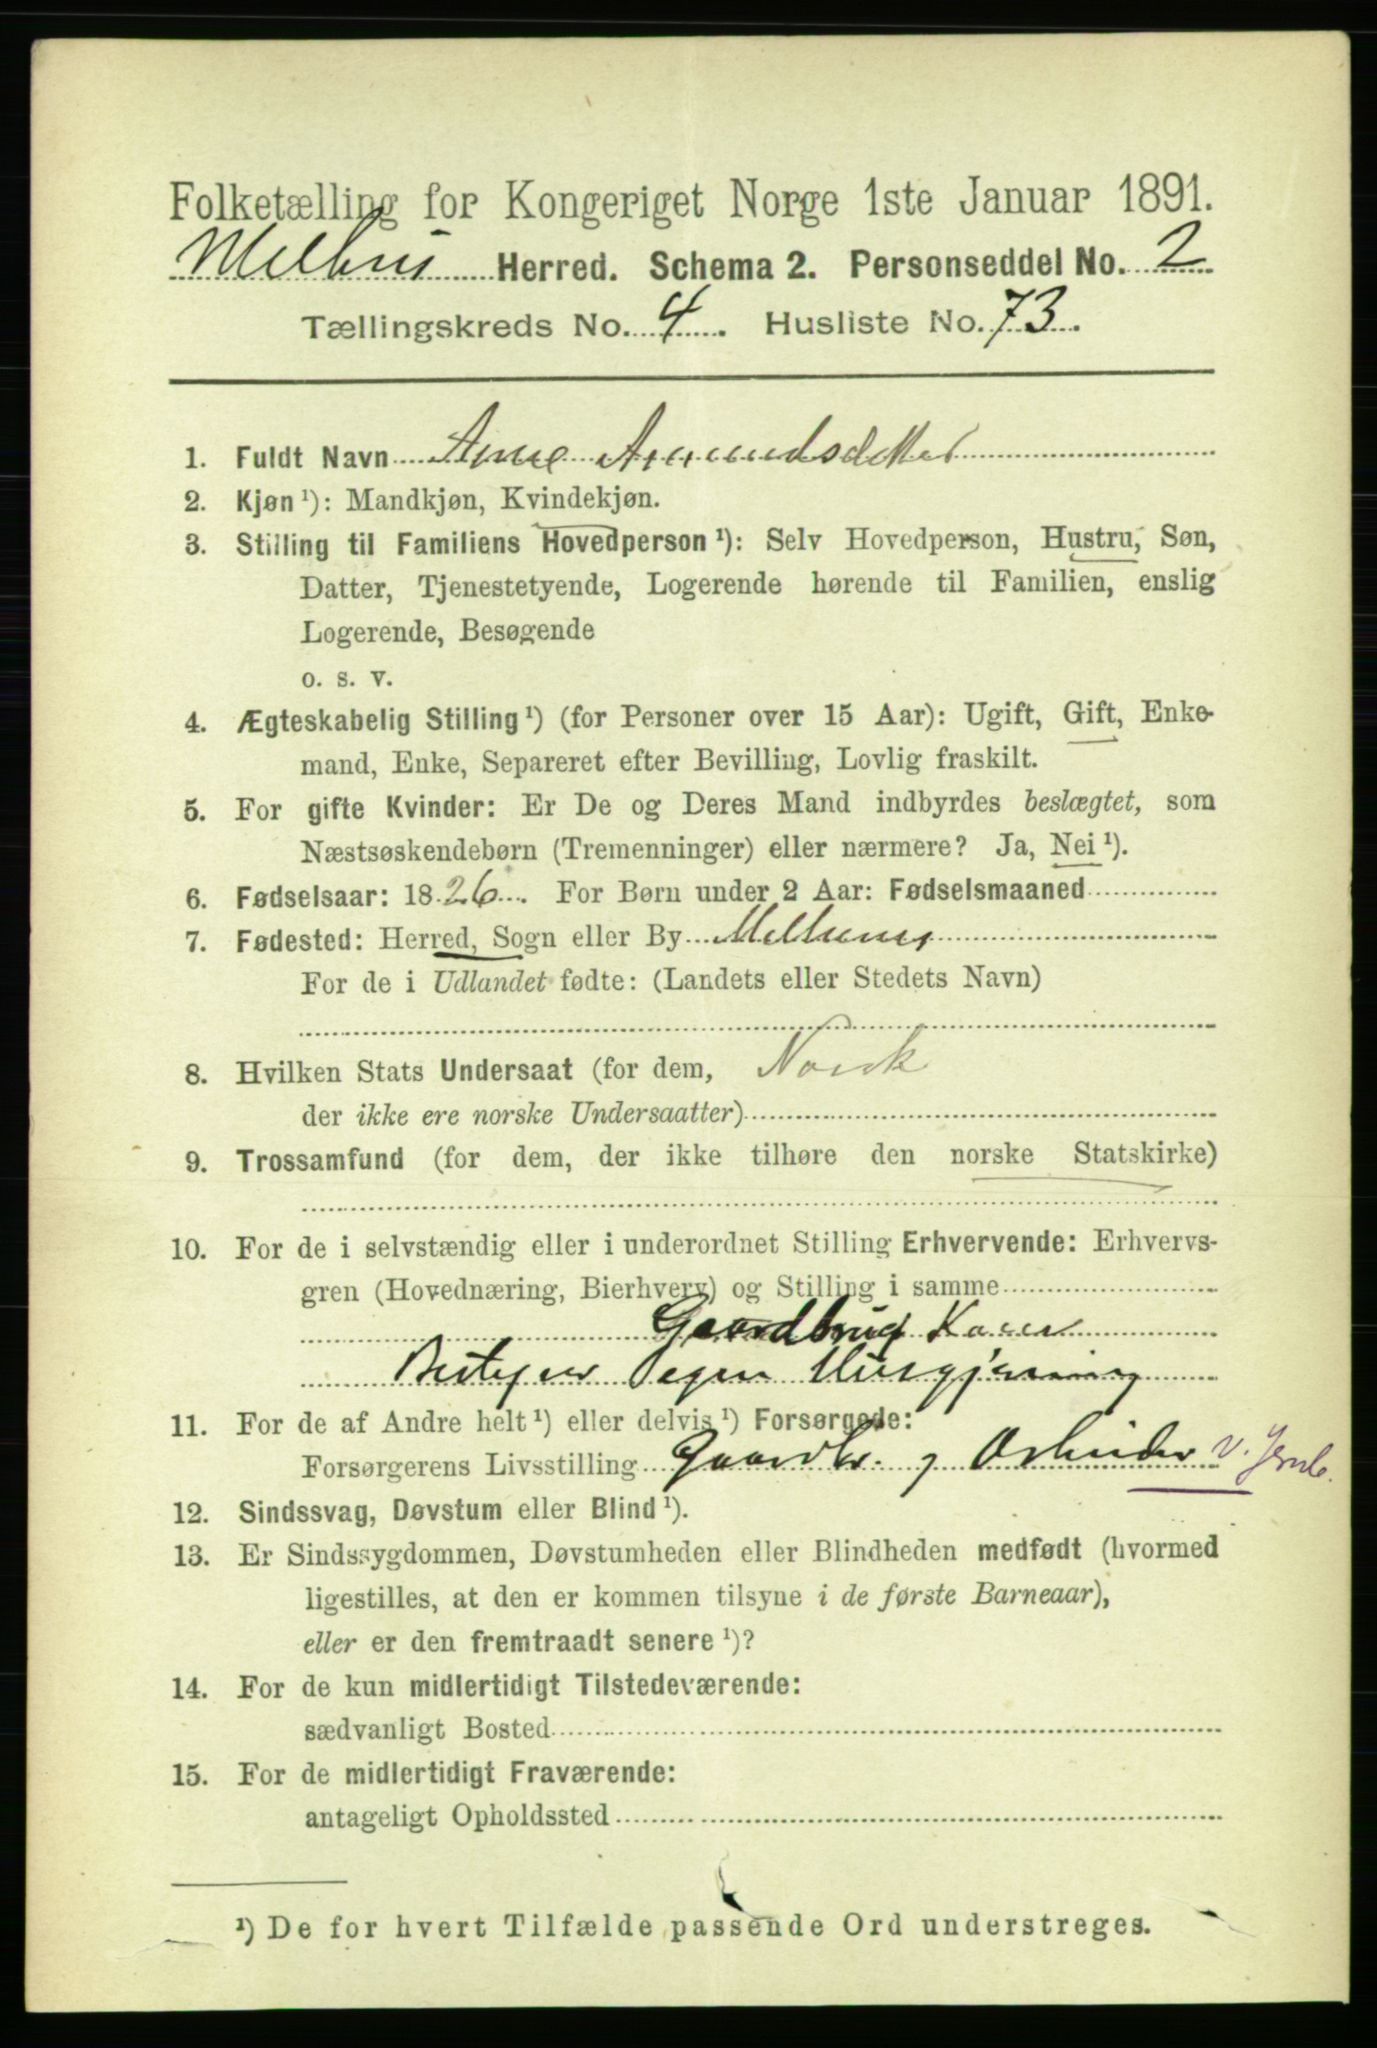 Folketælling for Kongeriget Norge 1ste Januar 1891.
Melhus Herred. Schema 2. Personseddel No. 2
Tællingskreds No. 4. Husliste No. 73.
1. Fuldt Navn Anne Amundsdatter
2. Kjøn ¹): Mandkjøn, Kvindekjøn.
3. Stilling til Familiens Hovedperson ¹): Selv Hovedperson, Hustru, Søn,
Datter, Tjenestetyende, Logerende hørende til Familien, enslig
Logerende, Besøgende
o. s. v.
4. Ægteskabelig Stilling ¹) (for Personer over 15 Aar): Ugift, Gift, Enke-
mand, Enke, Separeret efter Bevilling, Lovlig fraskilt.
5. For gifte Kvinder: Er De og Deres Mand indbyrdes beslægtet, som
Næstsøskendebørn (Tremenninger) eller nærmere? Ja, Nei ¹).
6. Fødselsaar: 1826. For Børn under 2 Aar: Fødselsmaaned
7. Fødested: Herred, Sogn eller By Melhuus
For de i Udlandet fødte: (Landets eller Stedets Navn)
8. Hvilken Stats Undersaat (for dem, Norsk
der ikke ere norske Undersaatter)
9. Trossamfund (for dem, der ikke tilhøre den norske Statskirke)
10. For de i selvstændig eller i underordnet Stilling Erhvervende: Erhvervs-
gren (Hovednæring, Bierhverv) og Stilling i samme
Gaardbrug Kone
Bestyrer Egen Husgjerning
11. For de af Andre helt ¹) eller delvis ¹) Forsørgede:
Forsørgerens Livsstilling Gaardbr. og Arbeider v. Jernb.
12. Sindssvag, Døvstum eller Blind ¹).
13. Er Sindssygdommen, Døvstumheden eller Blindheden medfødt (hvormed
ligestilles, at den er kommen tilsyne i de første Barneaar),
eller er den fremtraadt senere ¹)?
14. For de kun midlertidigt Tilstedeværende:
sædvanligt Bosted
15. For de midlertidigt Fraværende:
antageligt Opholdssted
¹) De for hvert Tilfælde passende Ord understreges.